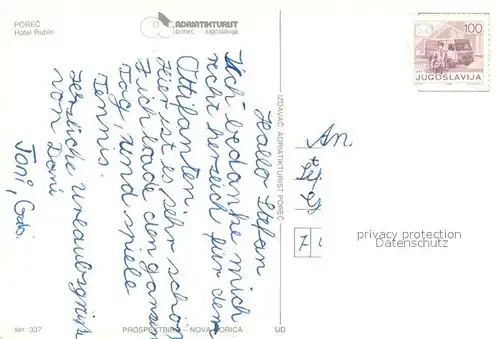 POREČ
Hotel Rubin
ADRIATIKTURIST
poreč jugoslavija
Hallo Stefan
Ich bedanke mich
recht herzlich für dem
Ottifanten
Hier ist es sehr schön
Ich bade den ganzen
Tag, und spiele
Tennis.
Herzliche Urlaubsgrüße
von Dani
Toni, Gabi.
IZDAVAČ ADRIATIKTURIST POREČ
An
100
JUGOSLAVIJA
7
privacy protection
Datenschutz
ser. 337
PROSPEKTBIRO - NOVA GORICA
UD